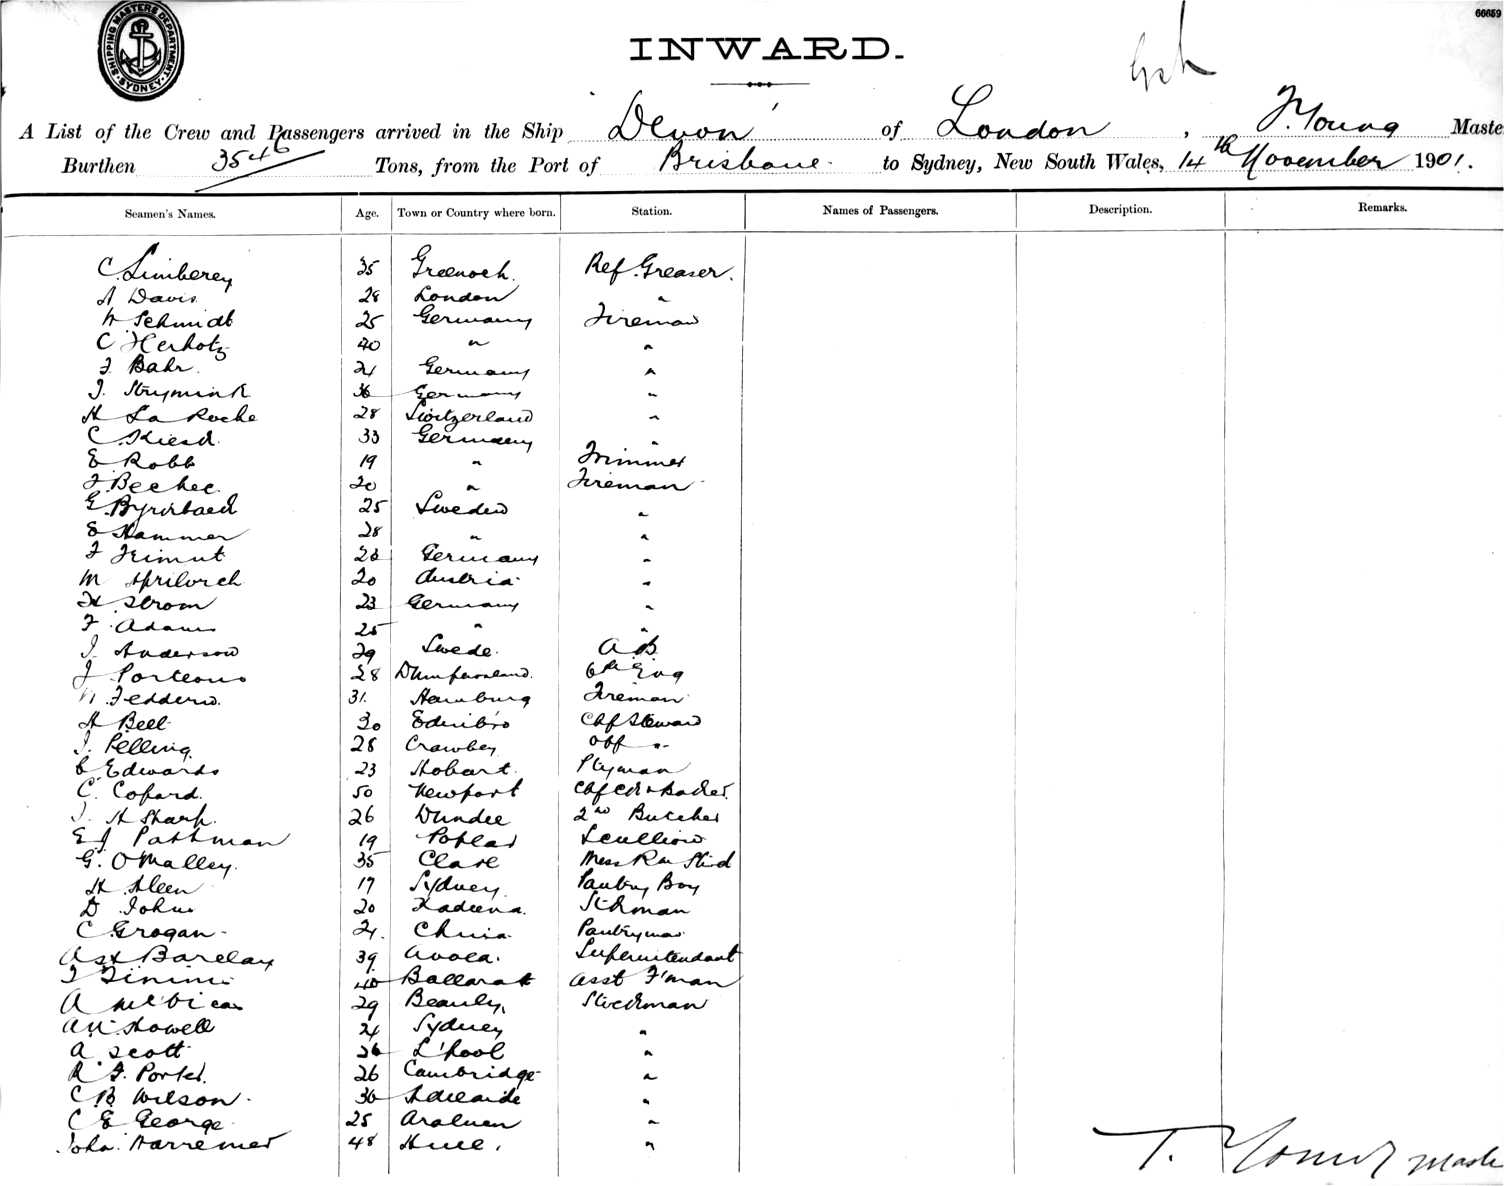 66659
SHIPPING MASTERS DEPARTMENT. SYDNEY.
INWARD.
A List of the Crew and Passengers arrived in the Ship "Devon" of London, T. Young Maste
Burthen 3546 Tons, from the Port of Brisbane to Sydney, New South Wales, 14th November 1901.
Seamen's Names. Age. Town or Country where born. Station. Names of Passengers. Description. Remarks.
C. Limberey 35 Greenock. Ref. Greaser.
A Davis 28 London "
W Schmidt 25 Germany Fireman
C Herhotz 40 " "
F Bahr. 21 Germany "
J. 36 Germany "
H La Roche 28 Switzerland "
C. 33 Germany "
E Robb 19 " Trimmer
F. Becker 20 " Fireman
G 25 Sweden "
E Hammer 28 " "
F 26 Germany "
M 20 Austria "
H Strom 23 Germany "
F Adams 25 " "
J. Anderson 29 Swede. A.B.
J Porteous 28 6th Eng
N. Fedders. 31. Hamburg Fireman
A Bell 30 Edinbro Chf Steward
J. Pelling 28 Crawley "
C Edwards 23 Hobart. Ptyman
C. Copard. 50 Newport Chf Ck & Baker.
J. H Sharp. 26 Dundee 2nd Butcher
E J Pattman 19 Poplar Scullion
G. O'Malley. 35 Clare Mess Rm Stwd
H. Aleen 17 Sydney Pantry Boy
D Johns 20 Kadina. St'kman
C. Grogan 21. China Pantryman
A St Barclay 39 Avoca. Superintendant
T 40 Ballarat Asst F'man
A 29 Beauly, Stockman
A.W. Howell 24 Sydney "
A Scott 26 L'pool "
R. F. Porter. 26 Cambridge "
C B Wilson. 30 Adelaide "
C E George 25 Araluen "
John. Harremer 48 Hull. "
T. Young Maste